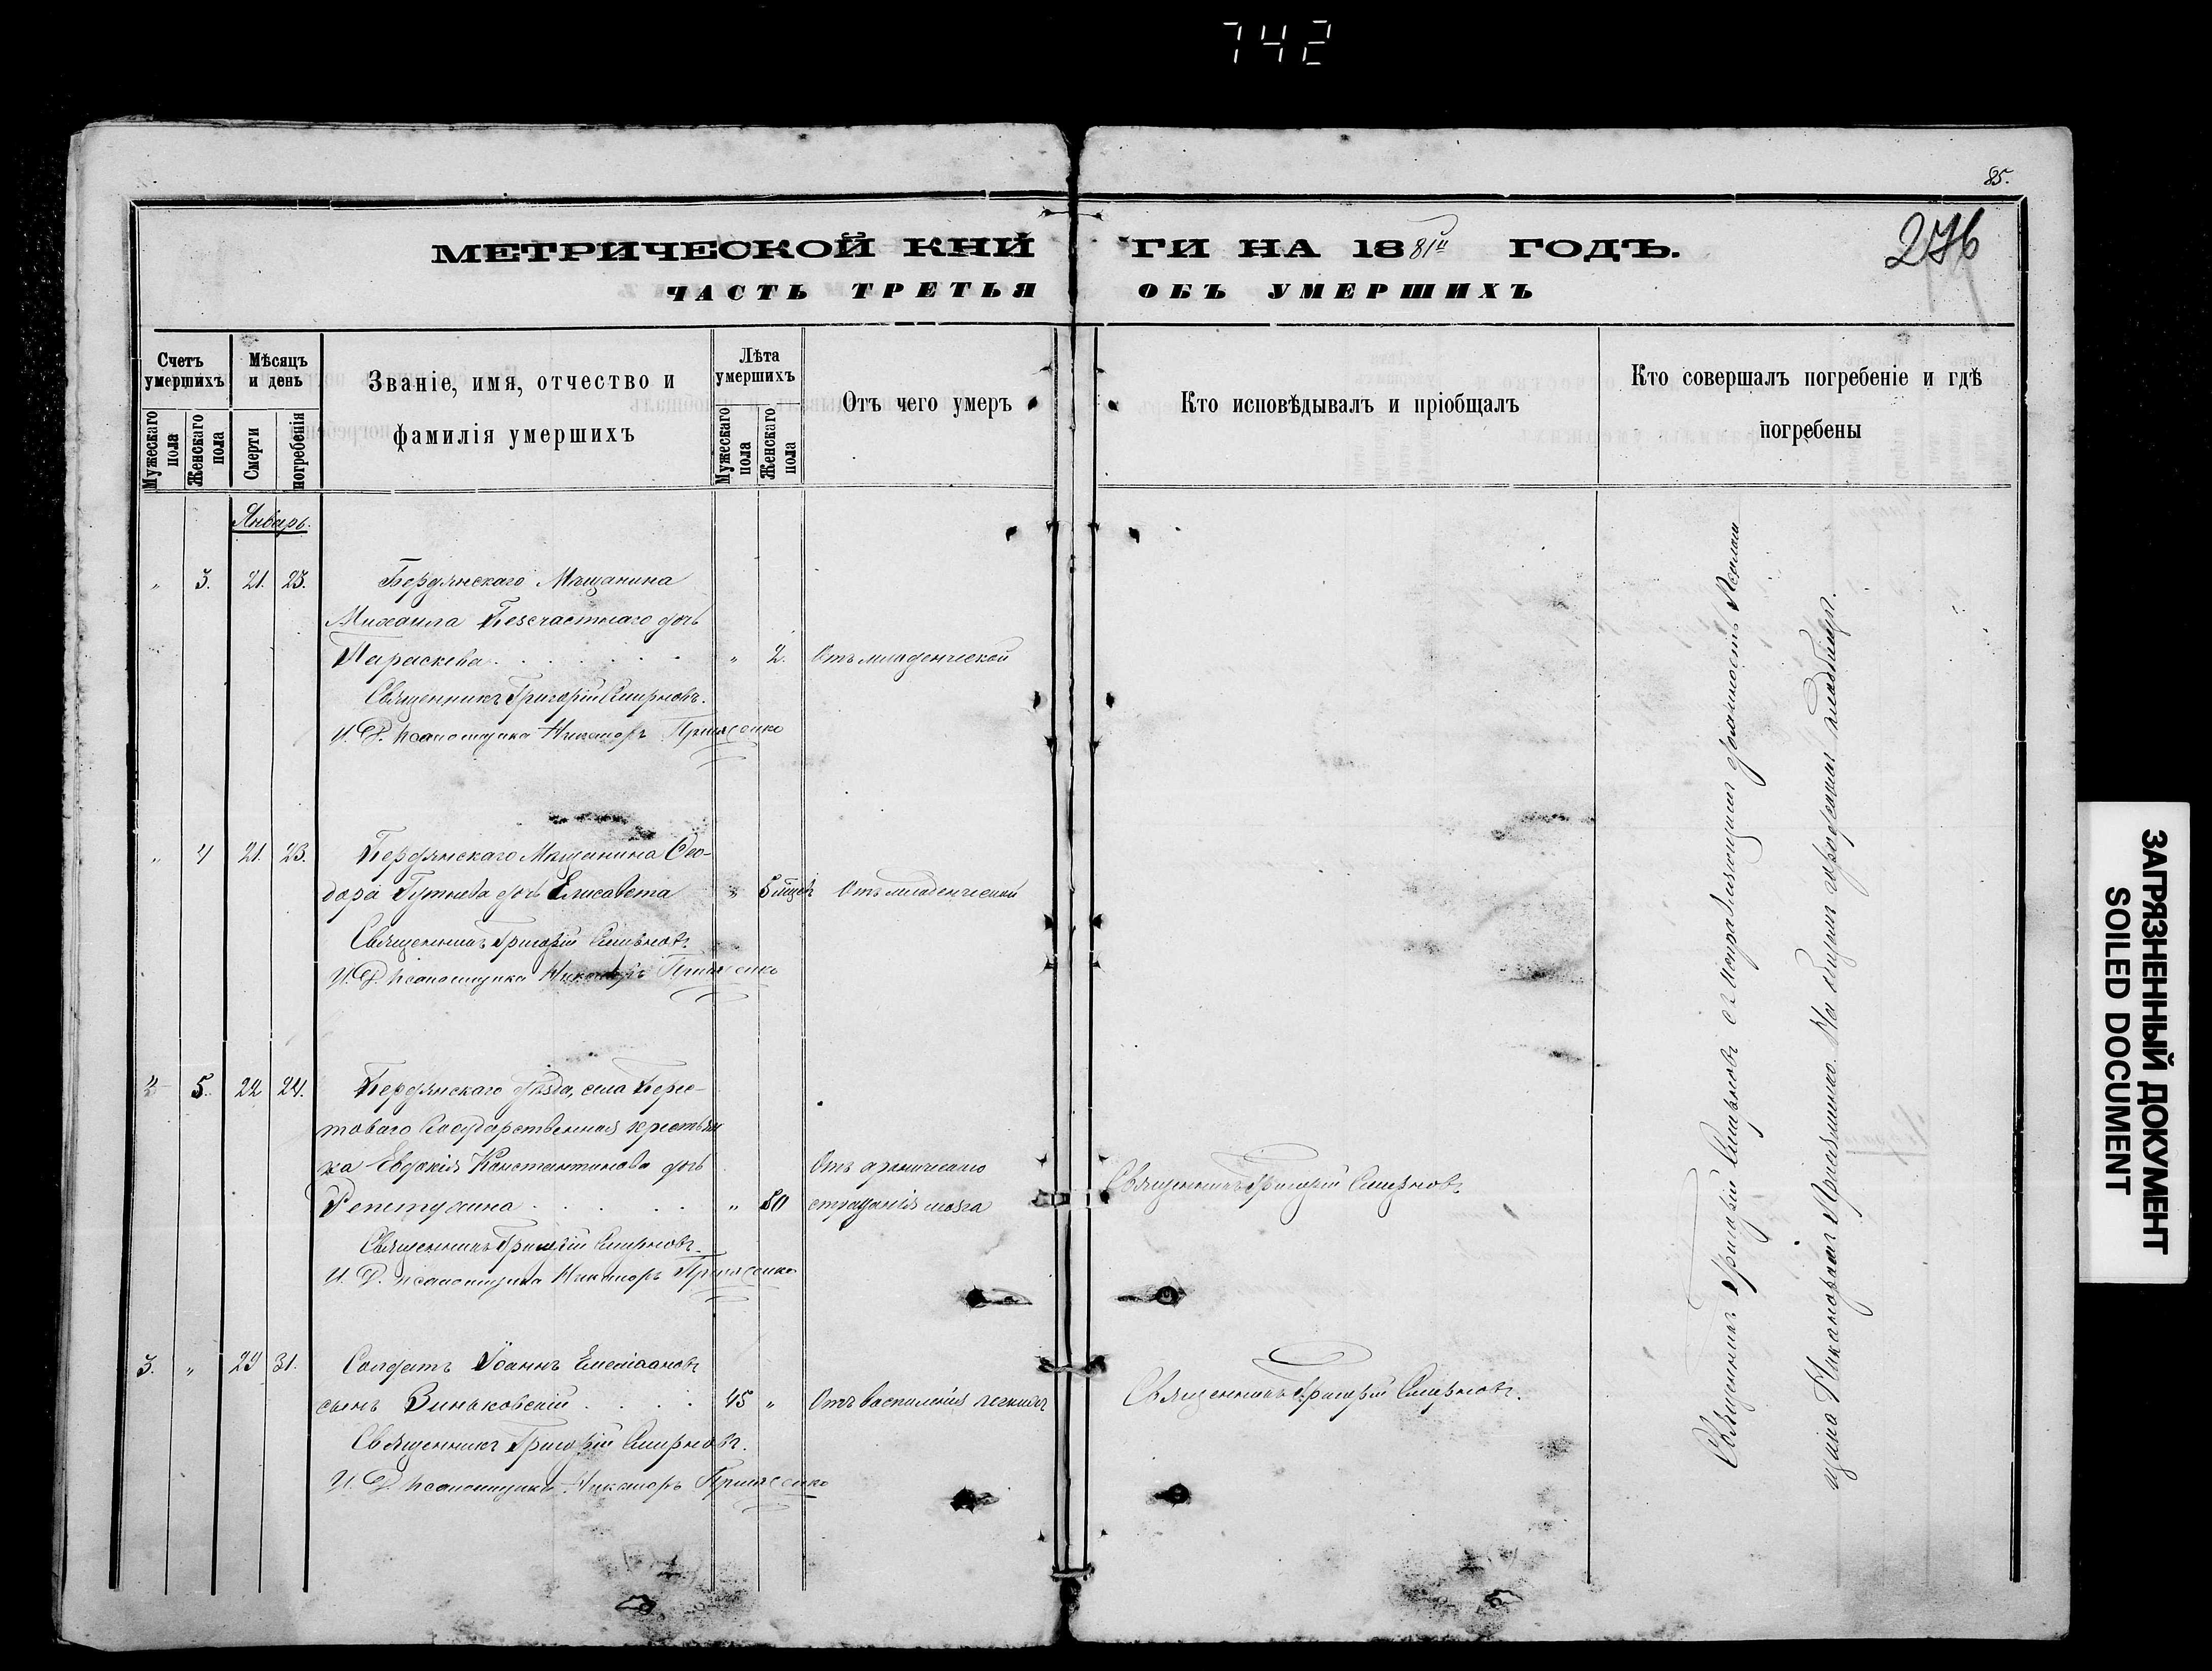 742
85.
276
МЕТРИЧЕСКОЙ КНИГИ НА 1881й ГОДЪ.
ЧАСТЬ ТРЕТЬЯ ОБЪ УМЕРШИХЪ
Счетъ умершихъ
Мужескаго пола
Женскаго пола
Мѣсяцъ и день
Смерти
погребенія
Званіе, имя, отчество и
фамилія умершихъ
Лѣта умершихъ
Мужескаго пола
Женскаго пола
Отъ чего умеръ
Кто исповѣдывалъ и пріобщалъ
Кто совершалъ погребеніе и гдѣ
погребены
Январь.
„ 3. 21. 23. Бердянскаго Мѣщанина
Михаила Безсчастнаго дочь
Параскева „ 2. Отъ младенческой
Священникъ Григорій Смирновъ.
И. Д. псаломщика Никаноръ
„ 4 21. 23. Бердянскаго Мѣщанина Ѳео-
дора дочь Елисавета „ 5 мцев Отъ младенческой
Священникъ Григорій Смирновъ
И. Д. псаломщика Никаноръ
5. 22 24. Бердянскаго уѣзда, села Берес-
товаго Государственная крестьян
ка Евдокія Константинова дочь Отъ хроническаго
„ 80 страданія мозга Священникъ Григорій Смирновъ
Священникъ Григорій Смирновъ
И. Д. псаломщика Никаноръ
3. „ 29 31. Солдатъ Іоаннъ Емеліановъ
сынъ Виньковскій 45 „ Отъ воспаленія легкихъ Священникъ Григорій Смирновъ.
Священникъ Григорій Смирновъ.
И. Д. псаломщика Никаноръ
Священникъ Григорій Смирновъ съ исправляющимъ должность Псалом
щика Никаноромъ На общемъ городскомъ кладбищѣ.
ЗАГРЯЗНЕННЫЙ ДОКУМЕНТ
SOILED DOCUMENT